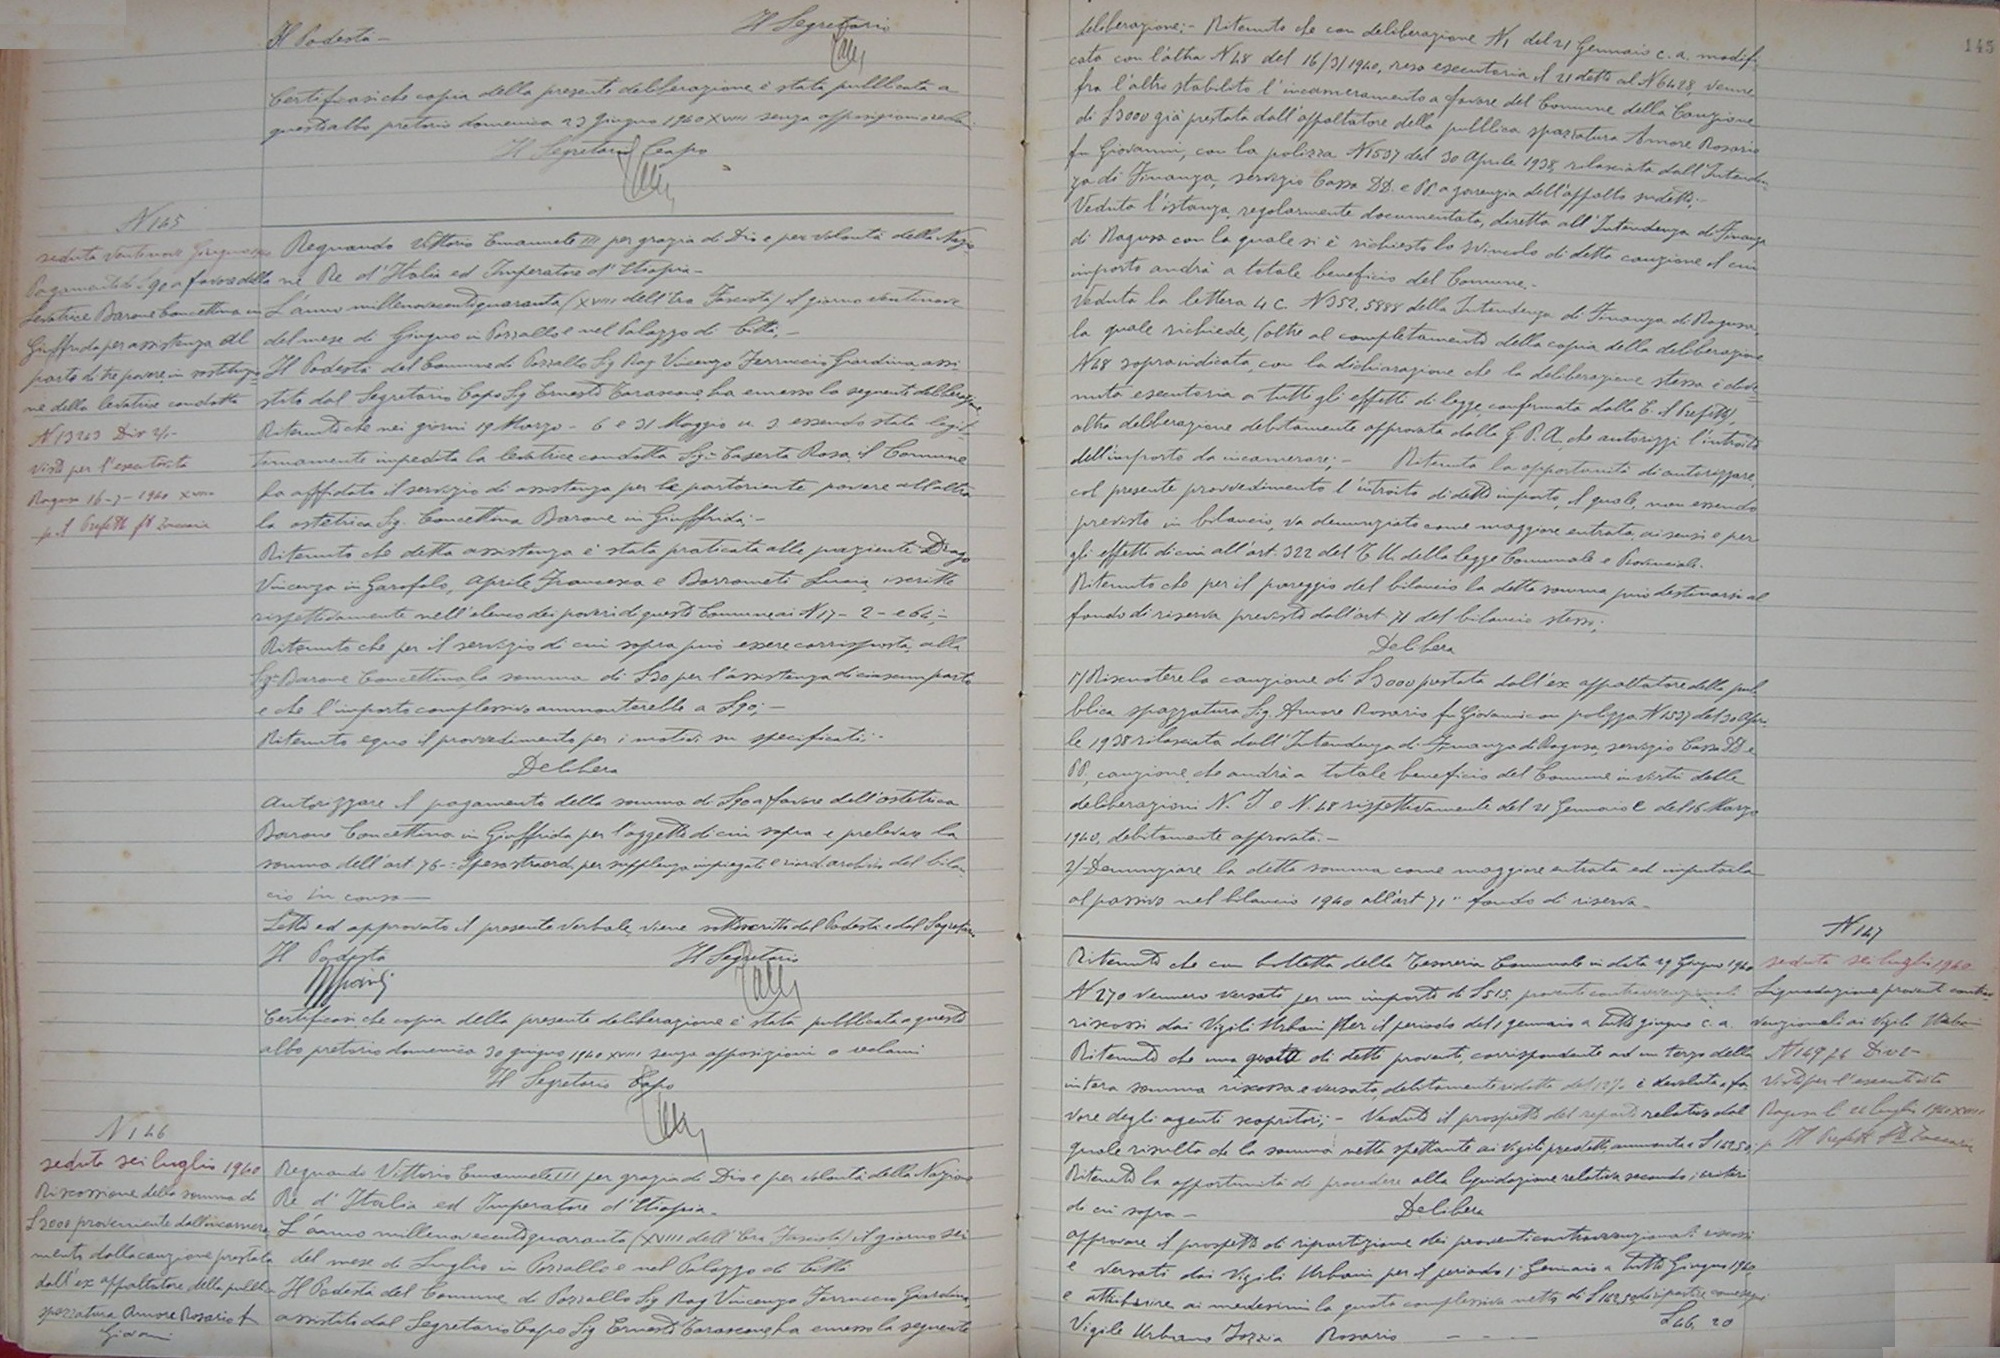 Il Podestà - Il Segretario
Certificasi che copia della presente deliberazione è stata pubblicata a
quest'albo pretorio domenica 23 Giugno 1940 XVIII senza opposizioni o reclami
Il Segretario Capo
N 145
seduta ventinove Giugno
Pagamento di L 90 a favore della
Levatrice Barone Concettina in
Giuffrida per assistenza al
parto di tre povere in sostituzio
ne della levatrice condotta
N 13263 Div 2/1-
Visto per l'esecutività
Ragusa 16-7-1940 XVIII
p. Il Prefetto
Regnando Vittorio Emanuele III per grazia di Dio e per volontà della Nazio
ne Re d'Italia ed Imperatore d'Etiopia -
L'anno millenovecentoquaranta (XVIII dell'Era Fascista) il giorno ventinove
del mese di Giugno in Pozzallo e nel Palazzo di Città. -
Il Podestà del Comune di Pozzallo Sig Rag Vincenzo Ferruccio Giardina, assi
stito dal Segretario Capo Sig Ernesto Tarascone, ha emesso la seguente deliberazione
Ritenuto che nei giorni 19 Marzo - 6 e 31 Maggio u. s essendo stata legit-
timamente impedita la levatrice condotta Sig. Caserta Rosa, il Comune
ha affidato il servizio di assistenza per le partorienti povere all'altra
la ostetrica Sig. Concettina Barone in Giuffrida; -
Ritenuto che detta assistenza è stata praticata alle pazienti Drago
Vincenza in Garofalo, Aprile Francesca e Barrometi Lucia, iscritte
rispettivamente nell'elenco dei poveri di questo Comune ai N 17 - 2 - e 64; -
Ritenuto che per il servizio di cui sopra può essere corrisposta, alla
Sig. Barone Concettina la somma di L 30 per l'assistenza di ciascun parto
e che l'importo complessivo ammonterebbe a L 90; -
Ritenuto equo il provvedimento per i motivi su specificati; -
Delibera
Autorizzare il pagamento della somma di L 90 a favore dell'ostetrica
Barone Concettina in Giuffrida per l'oggetto di cui sopra e prelevare la
somma dell'art. 76 - Spese straord. per supplenza impiegati e riord. archivio del bilan
cio in corso -
Letto ed approvato il presente verbale viene sottoscritto dal Podestà e dal Segretario
Il Podestà Il Segretario
Certificasi che copia della presente deliberazione è stata pubblicata a questo
albo pretorio domenica 30 giugno 1940 XVIII senza opposizioni o reclami
Il Segretario Capo
N 146
seduta sei luglio 1940
Riscossione della somma di
L 3000 proveniente dall'incamera
mento dalla cauzione prestata
dall'ex appaltatore della pubblica
spazzatura Amore Rosario f
Giovanni
Regnando Vittorio Emanuele III per grazia di Dio e per volontà della Nazione
Re d'Italia ed Imperatore d'Etiopia. -
L'anno millenovecentoquaranta (XVIII dell'Era Fascista) il giorno sei
del mese di Luglio in Pozzallo e nel Palazzo di Città
Il Podestà del Comune di Pozzallo Sig Rag Vincenzo Ferruccio Giardina,
assistito dal Segretario Capo Sig Ernesto Tarascone, ha emesso la seguente
145
deliberazione: - Ritenuto che con deliberazione N 1 del 21 Gennaio c. a. modifi
cata con l'altra N 48 del 16/3/1940, resa esecutoria il 21 detto al N 6428, venne
fra l'altro stabilito l'incameramento a favore del Comune della Cauzione
di L 3000 già prestata dall'appaltatore della pubblica spazzatura Amore Rosario
fu Giovanni, con la polizza N 1537 del 30 Aprile 1938, rilasciata dall'Intenden
za di Finanza, servizio Cassa DD. e PP. a garanzia dell'appalto sudetto; -
Veduta l'istanza, regolarmente documentata, diretta all'Intendenza di Finanza
di Ragusa con la quale si è richiesto lo svincolo di detta cauzione il cui
importo andrà a totale beneficio del Comune. -
Veduta la lettera 4 c. N 352.5888 della Intendenza di Finanza di Ragusa,
la quale richiede, (oltre al completamento della copia della deliberazione
N 48 sopraindicata, con la dichiarazione che la deliberazione stessa è dive-
nuta esecutoria a tutti gli effetti di legge, confermata dalla E. il Prefetto),
altra deliberazione debitamente approvata dalla G. P. A. che autorizzi l'introito
dell'importo da incamerare; - Ritenuta la opportunità di autorizzare,
col presente provvedimento l'introito di detto importo, il quale, non essendo
previsto in bilancio, va denunziato come maggiore entrata, ai sensi e per
gli effetti di cui all'art. 322 del T. U. della legge Comunale e Provinciale.
Ritenuto che per il pareggio del bilancio la detta somma può destinarsi al
fondo di riserva previsto dall'art 71 del bilancio stesso;
Delibera
1/ Riscuotere la cauzione di L 3000 prestata dall'ex appaltatore della pub
blica spazzatura Sig. Amore Rosario fu Giovanni con polizza N 1537 del 30 Apri
le 1938 rilasciata dall'Intendenza di Finanza di Ragusa, servizio Cassa DD. e
PP, cauzione, che andrà a totale beneficio del Comune in virtù delle
deliberazioni N. I e N. 48 rispettivamente del 21 Gennaio e del 16 Marzo
1940, debitamente approvate. -
2/ Denunziare la detta somma come maggiore entrata ed imputarla
al passivo nel bilancio 1940 all'art 71 " fondo di riserva -
N 147
seduta sei luglio 1940
Liquidazione proventi contrav
venzionali ai Vigili Urbani
N 14976 Div 2-
Visto per l'esecutività
Ragusa li 22 luglio 1940 XVIII
p. Il Prefetto
Ritenuto che con bolletta della Tesoreria Comunale in data 29 Giugno 1940
N 270 vennero versati per un importo di L 515, proventi contravvenzionali
riscossi dai Vigili Urbani per il periodo del 1 gennaio a tutto giugno c. a.
Ritenuto che una quota di detti proventi, corrispondente ad un terzo della
intera somma riscossa e versata, debitamente ridotta del 12% è devoluta a fa
vore degli agenti scopritori; - Veduto il prospetto del riparto relativo dal
quale risulta che la somma netta spettante ai Vigili predetti, ammonta a L 142,50;
Ritenuto la opportunità di procedere alla liquidazione relativa secondo i criteri
di cui sopra - Delibera
Approvare il prospetto di ripartizione dei proventi contravvenzionali riscossi
e versati dai Vigili Urbani per il periodo 1° Gennaio a tutto Giugno 1940,
e attribuire ai medesimi la quota complessiva netta di L 142,50, da ripartire come segue
Vigile Urbano Iozzia Rosario - - - - L 46, 20